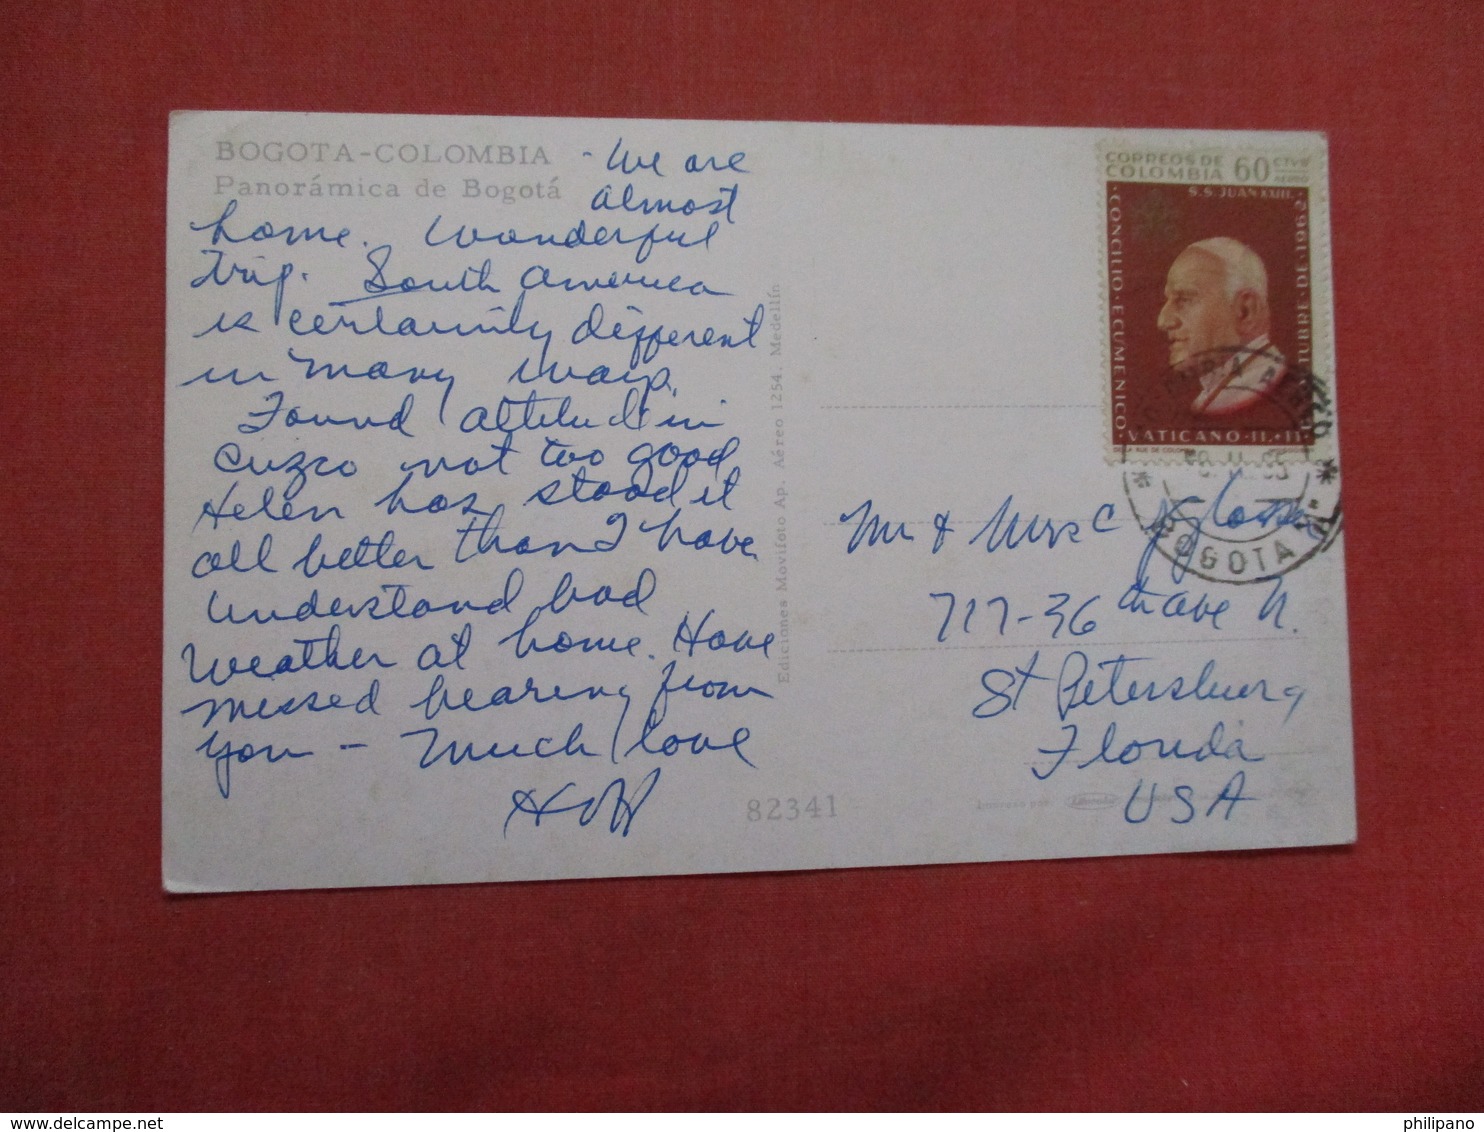 BOGOTA-COLOMBIA
Panorámica de Bogotá
- We are
almost
home. Wonderful
trip. South America
is certainly different
in many ways.
Found altitude in
Cuzco not too good
Helen has stood it
all better than I have.
Understand bad
weather at home. Have
missed hearing from
you - Much love
82341
Ediciones Movifoto Ap. Aéreo 1254. Medellín
CORREOS DE
COLOMBIA 60 CTVS
AEREO
S.S. JUAN XXIII
CONCILIO · ECUMENICO · VATICANO · II · 11 OCTUBRE · DE · 1962
BOGOTA
Mr & Mrs C
717-36th ave N.
St Petersburg
Florida
USA
Impreso por
www.delcampe.net
philipano